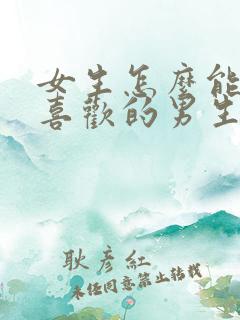 女生怎麼能
喜歡的男生
耿彥紅
未經同意禁止轉載